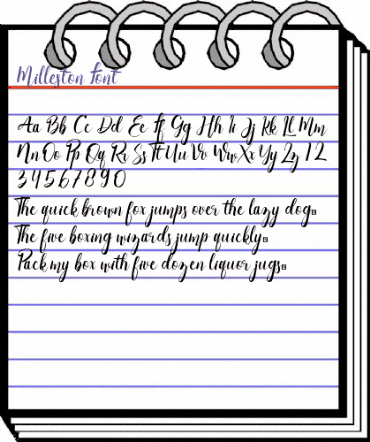 Milleston Font
Aa Bb Cc Dd Ee Ff Gg Hh Ii Jj Kk Ll Mm
Nn Oo Pp Qq Rr Ss Tt Uu Vv Ww Xx Yy Zz 1 2
3 4 5 6 7 8 9 0
The quick brown fox jumps over the lazy dog
The five boxing wizards jump quickly
Pack my box with five dozen liquor jugs